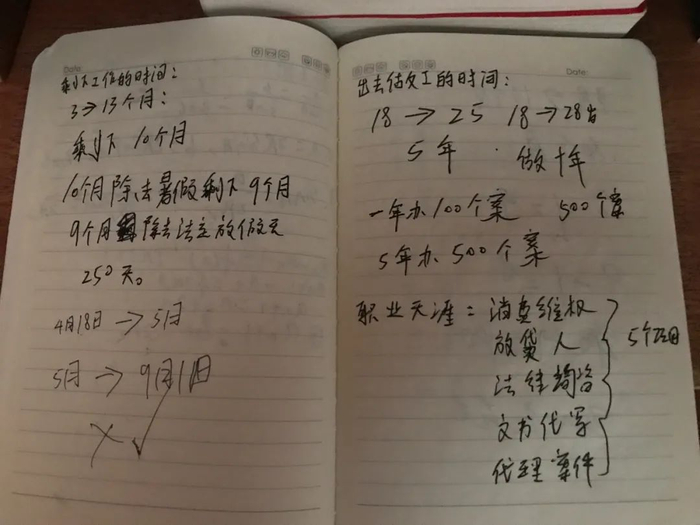 Date
剩下工作的时间:
3→13个月:
剩下 10个月
10个月除去暑假剩下9个月
9个月除去法定放假天
250天。
4月18日 → 5月
5月 → 9月1日
Date
出去做工的时间:
18 → 25 18 → 28岁
5年 · 做十年
一年办100个案 500个案
5年办500个案
职业天涯: 消费维权
放贷人
法律询咨
文书代写
代理案件
5个项目